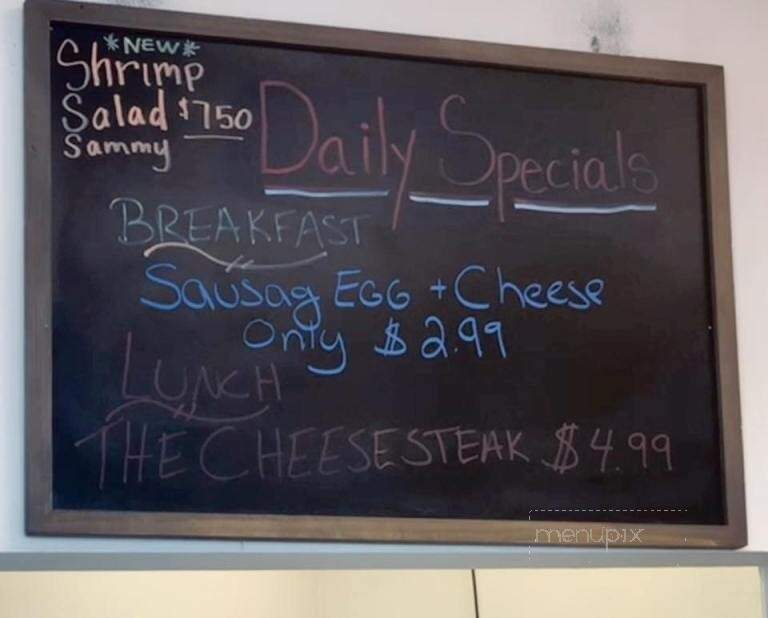 *NEW*
Shrimp
Salad $750
Sammy
Daily Specials
BREAKFAST
Sausag EGG + Cheese
Only $2.99
LUNCH
THE CHEESESTEAK $4.99
menupix